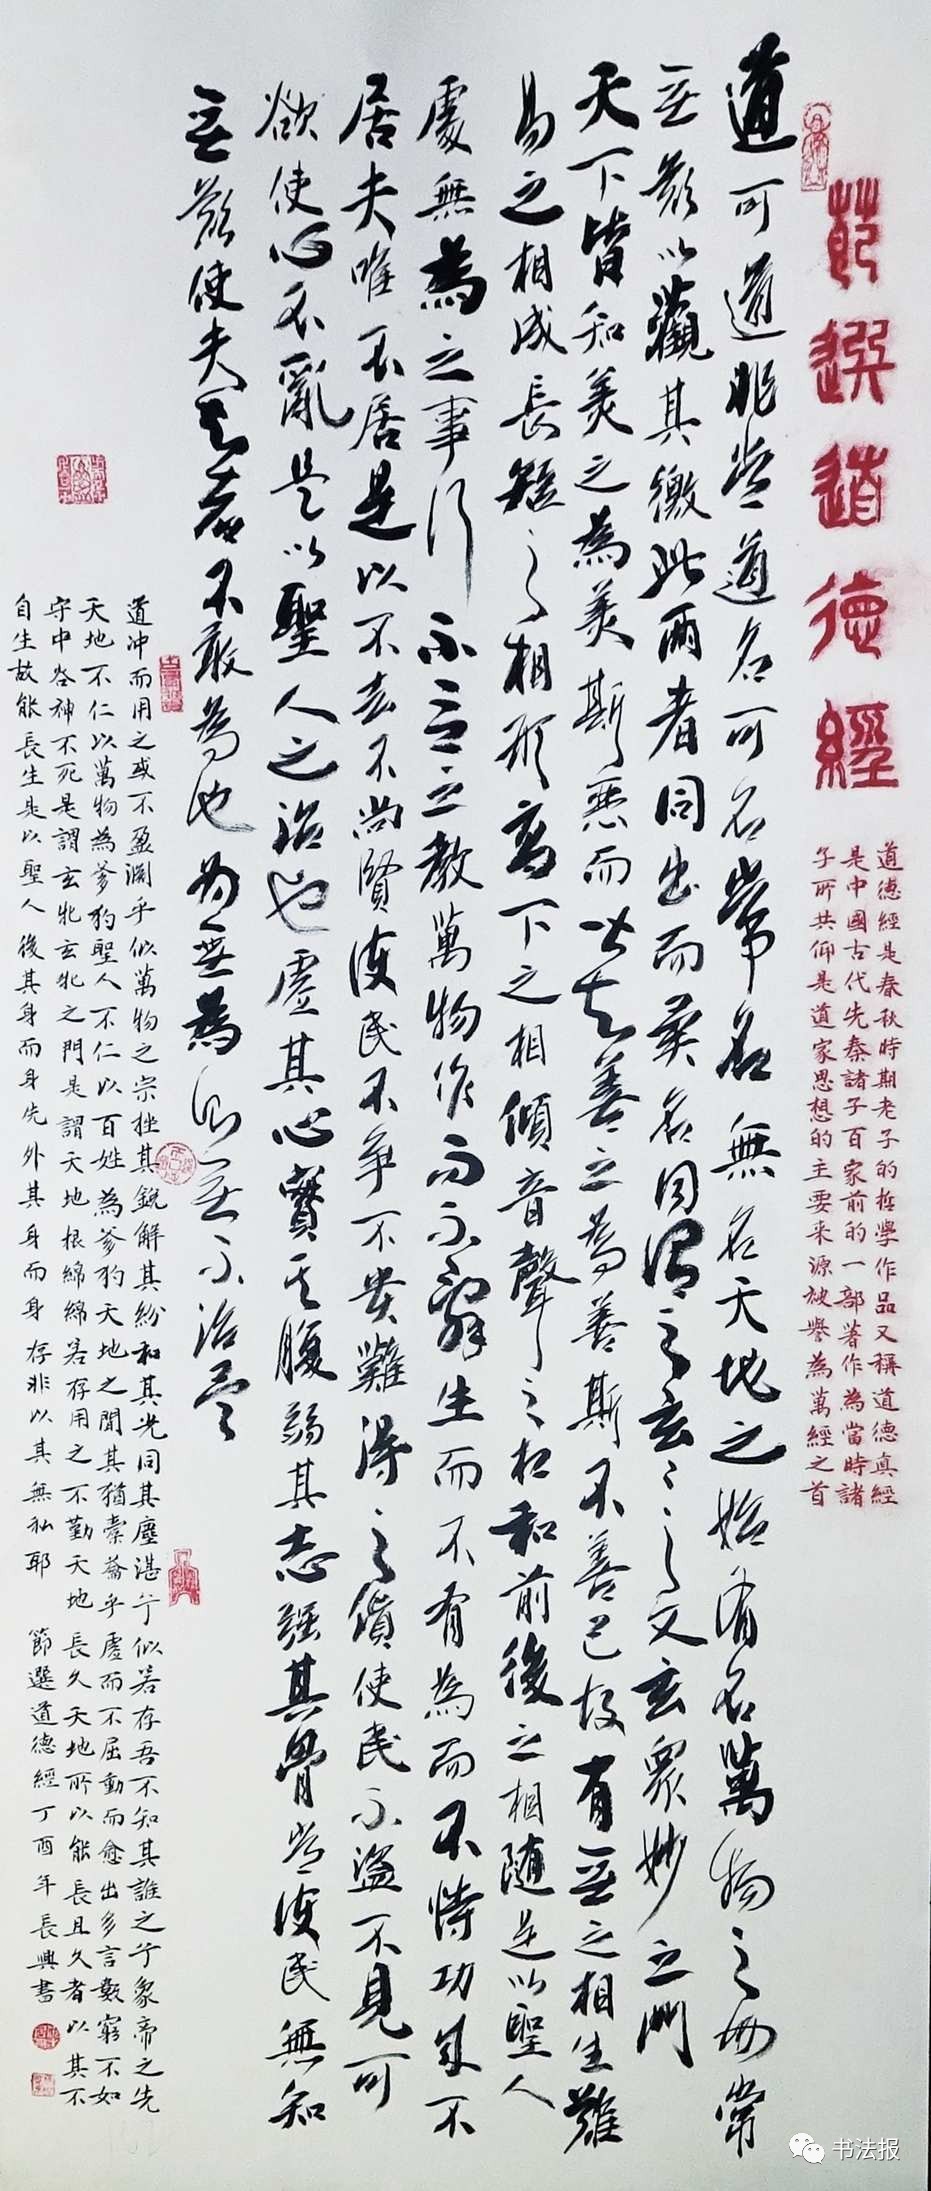 節選道德經
道德經是春秋時期老子的哲學作品又稱道德真經
是中國古代先秦諸子百家前的一部著作為當時諸
子所共仰是道家思想的主要来源被譽為萬經之首
道可道非常道名可名常名無名天地之始有名萬物之母常
無欲以觀其徼此兩者同出而異名同謂之玄玄之又玄眾妙之門
天下皆知美之為美斯惡而皆知善之為善斯不善已故有無之相生難
易之相成長短之相形高下之相傾音聲之相和前後之相隨是以聖人
處無為之事行不言之教萬物作而不辭生而不有為而不恃功成不
居夫唯不居是以不去不尚賢使民不爭不貴難得之貨使民不盜不見可
欲使心不亂是以聖人之治也虛其心實其腹弱其志強其骨常使民無知
無欲使夫智者不敢為也為無為則無不治矣
道冲而用之或不盈淵乎似萬物之宗挫其銳解其紛和其光同其塵湛兮似若存吾不知其誰之兮象帝之先
天地不仁以萬物為芻狗聖人不仁以百姓為芻狗天地之間其猶橐龠乎虛而不屈動而愈出多言數窮不如
守中谷神不死是謂玄牝玄牝之門是謂天地根綿綿若存用之不勤天地長久天地所以能長且久者以其不
自生故能長生是以聖人後其身而身先外其身而身存非以其無私耶
節選道德經丁酉年長興書
书法报